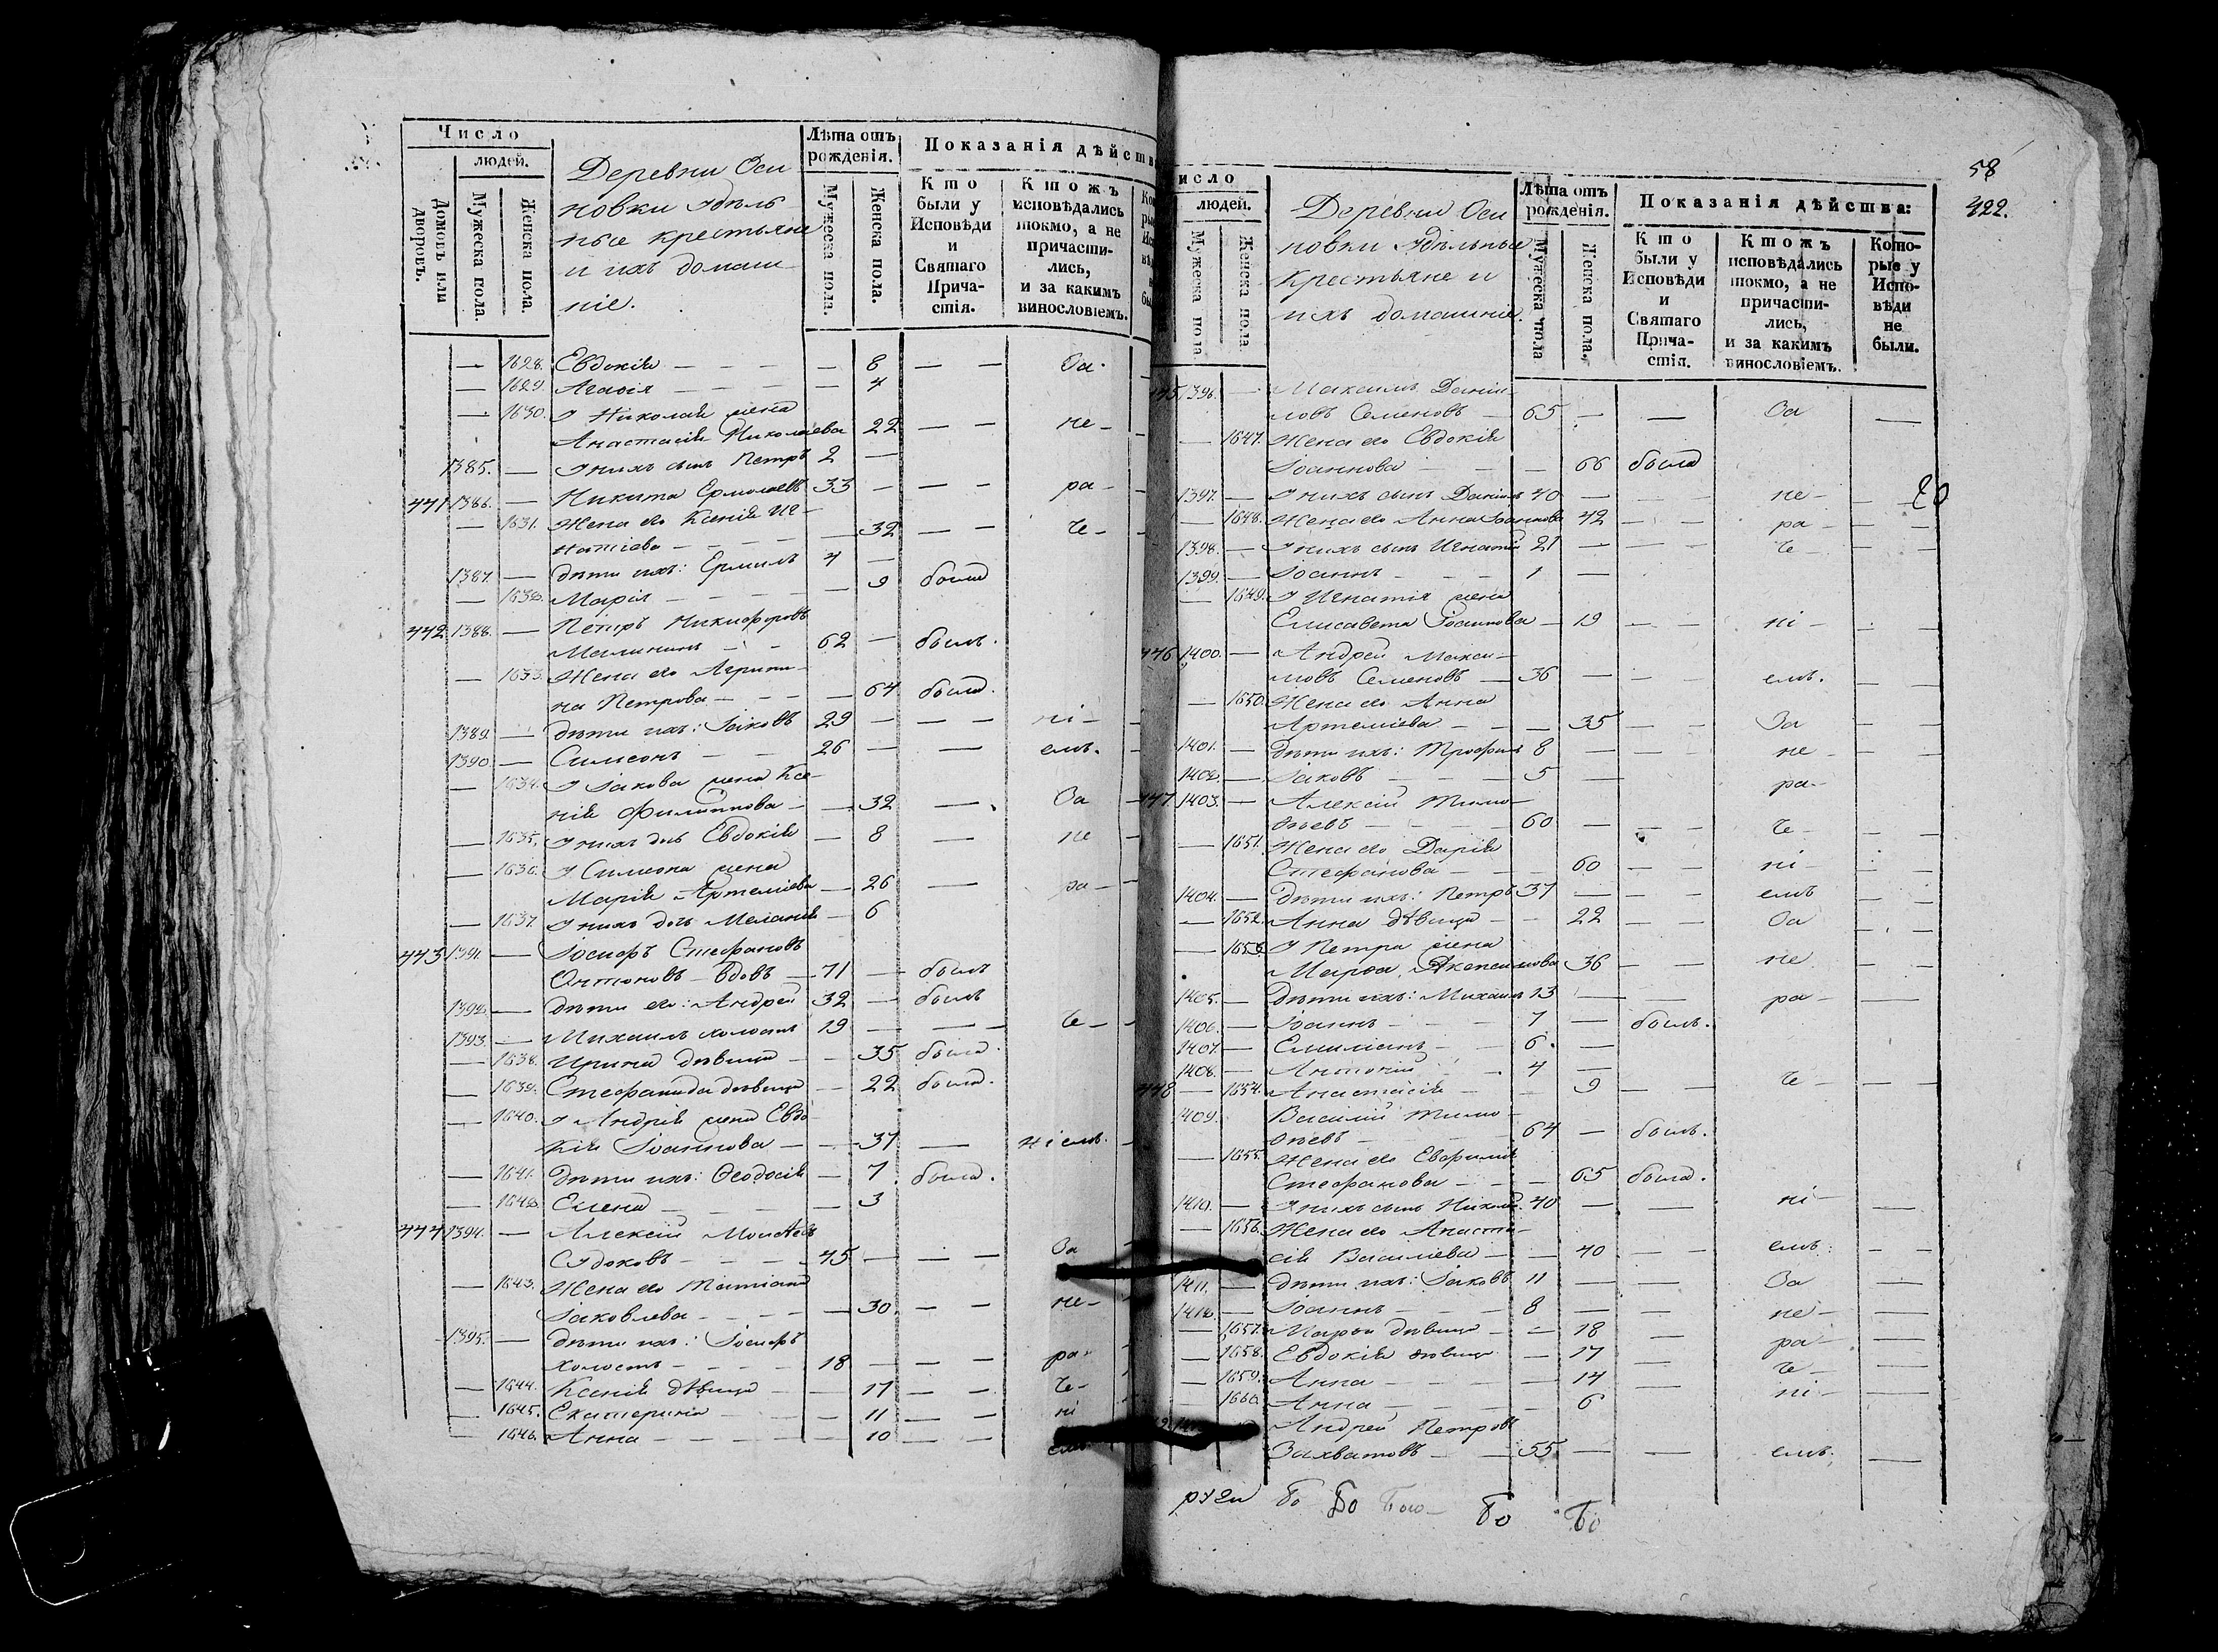 Число
людей.
Домовъ или дворовъ.
Мужеска пола.
Женска пола.
Деревни Оси
новки удѣль
ные крестьяне
и ихъ домаш
ніе.
Лѣта отъ рожденія.
Мужеска пола.
Женска пола.
Показанія дѣйств
Кто были у Исповѣди и Святаго Прича- стія.
Ктожъ исповѣдались токмо, а не причасти- лись, и за какимъ винословіемъ.
— 1628. Евдокія — — — — 8 — — За
— 1629. Агафія — — — — 4
— 1630. У Николая жена
Анастасія Николаева 22 — — не-
1385. — У нихъ сынъ Петръ 2 —
441 1386. — Никита Ермолаевъ 33 — — — ра-
— 1631. Жена его Ксенія Иг-
натіева — — — — 32 — — че-
1387. — дѣти ихъ: Ермилъ 4 —
— 1632. Марія — — — — 9 была
442. 1388. — Петръ Никифоровъ
Малининъ — — 62 — былъ.
— 1633. Жена его Агрипи-
на Петрова — — — — 64 была.
1389. — дѣти ихъ: Іаковъ 29 — — — ні-
1390. — Симеонъ — — 26 — — емъ.
— 1634. У Іакова жена Ксе-
нія Филиппова — — 32 — За
— 1635. У нихъ дочь Евдокія — 8 — не
— 1636. У Симеона жена
Марія Артеміева — 26 — ра-
— 1637. У нихъ дочь Меланія — 6
443 1391. — Іосифъ Стефановъ
Антоновъ вдовъ — 71 — былъ
1392. — дѣти его: Андрей 32 — былъ
1393. — Михаилъ холостъ 19 — — — че-
— 1638. Ирина дѣвица — — 35 была
— 1639. Стефанида дѣвица — 22 была.
— 1640. У Андрея жена Евдо-
кія Іоаннова — — 37 — ніемъ.
— 1641. дѣти ихъ: Ѳеодосія — 7 была.
— 1642. Елена — — — — 3
444 1394. — Алексій Моисеевъ
Судоковъ — — — 45 — — — За
— 1643. Жена его Татіана
Іаковлева — — — — 30 — — не-
1395. — дѣти ихъ: Іосифъ
холостъ — — — — 18 — — — ра-
— 1644. Ксенія дѣвица — — 17 — — че-
— 1645. Екатерина — — — 11 — — ні
— 1646. Анна — — — — 10 — — емъ
58
422.
исло
людей.
Мужеска пола
Женска пола.
Деревни Оси
новки удѣльные
крестьяне и
ихъ домашніе.
Лѣта отъ рожденія.
Мужеска пола
Женска пола.
Показанія дѣйства:
Кто были у Исповѣди и Святаго Прича- стія.
Ктожъ исповѣдались токмо, а не причасти- лись, и за какимъ винословіемъ.
Кото- рые у Испо- вѣди не были.
445 1396. — Максимъ Дании-
ловъ Семеновъ — 65 — — За —
— 1647. Жена его Евдокія
Іоаннова — — — 66 была
1397. — У нихъ сынъ Даніилъ 40 — — — не- —
— 1648. Жена его Анна Іоаннова 42 — — ра- — —
1398. — У нихъ сынъ Игнатій 21 — — — че- — —
1399. — Іоаннъ — — — 1 —
— 1649. У Игнатія жена
Елисавета Іоаннова — 19 — — ні- — —
446 1400. — Андрей Макси-
мовъ Семеновъ — 36 — — — емъ. — —
— 1650. Жена его Анна
Артеміева — — — 35 — — За — —
1401. — Дѣти ихъ: Трофимъ 8 — — не — —
1402. — Іаковъ — — — 5 — ра-
447 1403. — Алексій Тимо-
ѳеевъ — — — — 60 — — — че- — —
— 1651. Жена его Дарія
Стефанова — — — 60 — — ні- — —
1404. — Дѣти ихъ: Петръ 37 — — — емъ — —
— 1652. Анна дѣвица — — 22 — — За — —
— 1653 У Петра жена
Марѳа 36 — — не — —
1405. — Дѣти ихъ: Михаилъ 13 — — ра- —
1406. — Іоаннъ — — — 7 — былъ.
1407. — Емиліанъ — — 6. —
1408. — Антоній — — 4 —
448 — 1654. Анастасія — — 9 — — че- — —
1409. Василій Тимо-
ѳеевъ — — — 64 — былъ.
— 1655. Жена его Евфимія
Стефанова — — — 65 была.
1410. — У нихъ сынъ Никола. 40 — — ні- —
— 1656. Жена его Анаста-
сія Василіева — — 40 — — емъ. — —
1411. — дѣти ихъ: Іаковъ 11 — — За —
1412. — Іоаннъ — — — 8 — — не- —
— 1657. Марѳа дѣвица — — 18 — ра- —
— 1658. Евдокія дѣвица — 17 — че- —
— 1659. Анна — — — — 14 — ні- —
— 1660. Анна — — — — 6
Андрей Петровъ
Захватовъ — — 55 — — емъ. —
20
Бо Бо Бою- Бо Бо